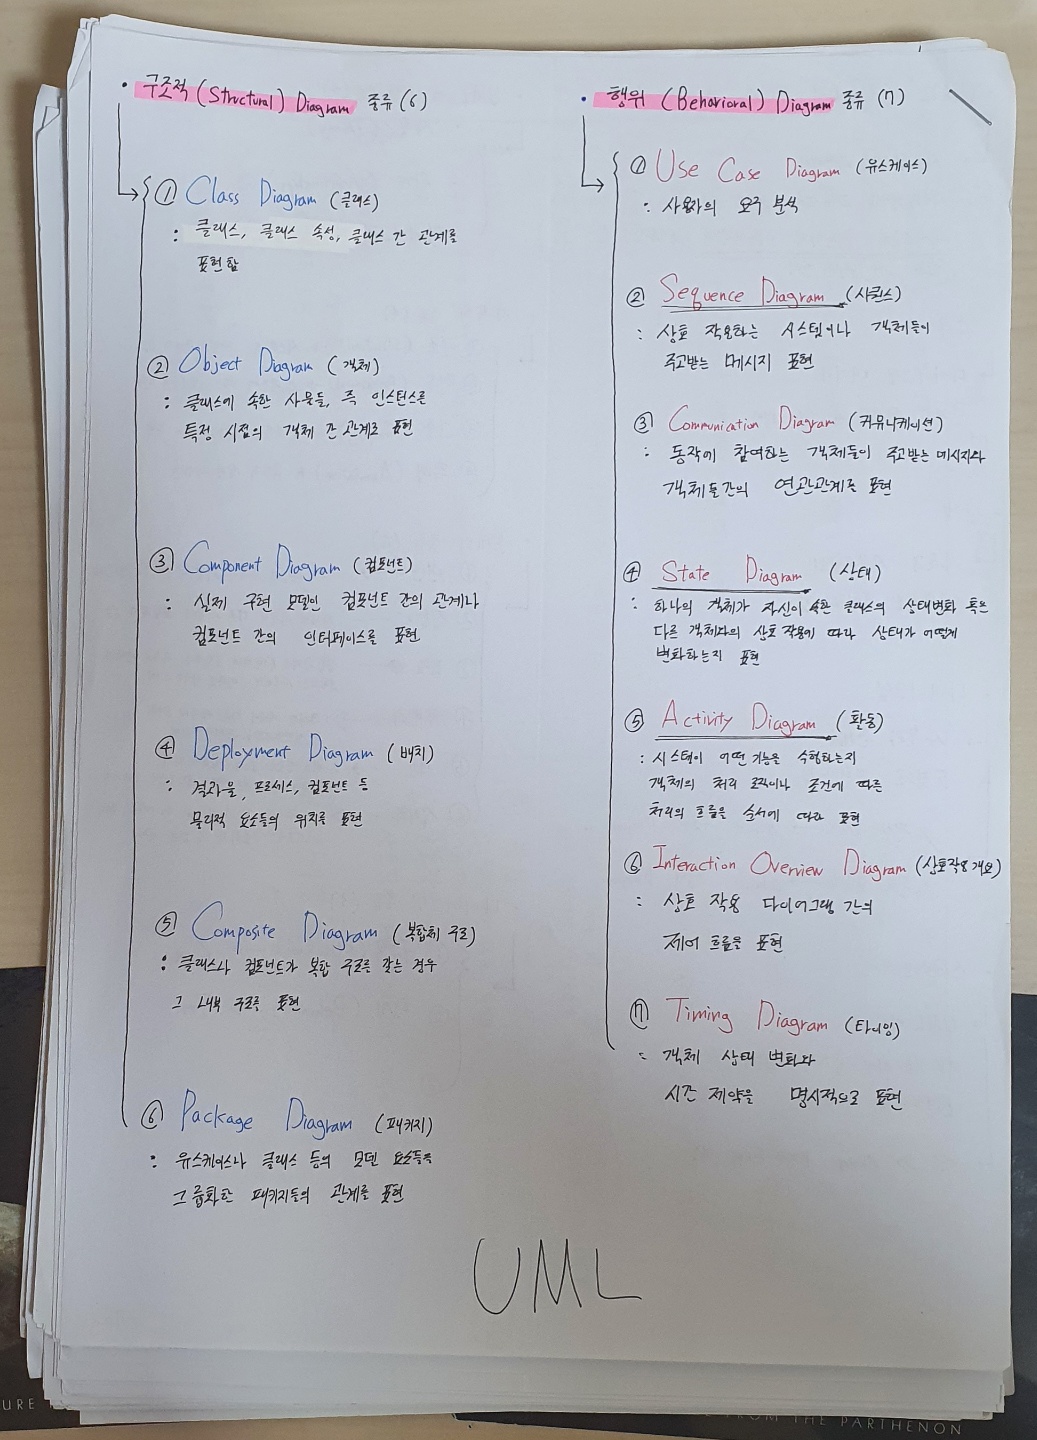 • 구조적 (Structural) Diagram 종류 (6)
① Class Diagram (클래스)
: 클래스, 클래스 속성, 클래스 간 관계를
표현함
② Object Diagram (객체)
: 클래스에 속한 사물들, 즉 인스턴스를
특정 시점의 객체 간 관계로 표현
③ Component Diagram (컴포넌트)
: 실제 구현 모델인 컴포넌트 간의 관계나
컴포넌트 간의 인터페이스를 표현
④ Deployment Diagram (배치)
: 결과물, 프로세스, 컴포넌트 등
물리적 요소들의 위치를 표현
⑤ Composite Diagram (복합체 구조)
: 클래스나 컴포넌트가 복합 구조를 갖는 경우
그 내부 구조를 표현
⑥ Package Diagram (패키지)
: 유스케이스나 클래스 등의 모델 요소들을
그룹화한 패키지들의 관계를 표현
• 행위 (Behavioral) Diagram 종류 (7)
① Use Case Diagram (유스케이스)
: 사용자의 요구 분석
② Sequence Diagram (시퀀스)
: 상호 작용하는 시스템이나 객체들이
주고받는 메시지 표현
③ Communication Diagram (커뮤니케이션)
: 동작에 참여하는 객체들이 주고받는 메시지와
객체들간의 연관관계를 표현
④ State Diagram (상태)
: 하나의 객체가 자신이 속한 클래스의 상태변화 혹은
다른 객체와의 상호 작용에 따라 상태가 어떻게
변화하는지 표현
⑤ Activity Diagram (활동)
: 시스템이 어떤 기능을 수행하는지
객체의 처리 로직이나 조건에 따른
처리의 흐름을 순서에 따라 표현
⑥ Interaction Overview Diagram (상호작용 개요)
: 상호 작용 다이어그램 간의
제어 흐름을 표현
⑦ Timing Diagram (타이밍)
: 객체 상태 변화와
시간 제약을 명시적으로 표현
UML
URE
FROM THE PARTHENON